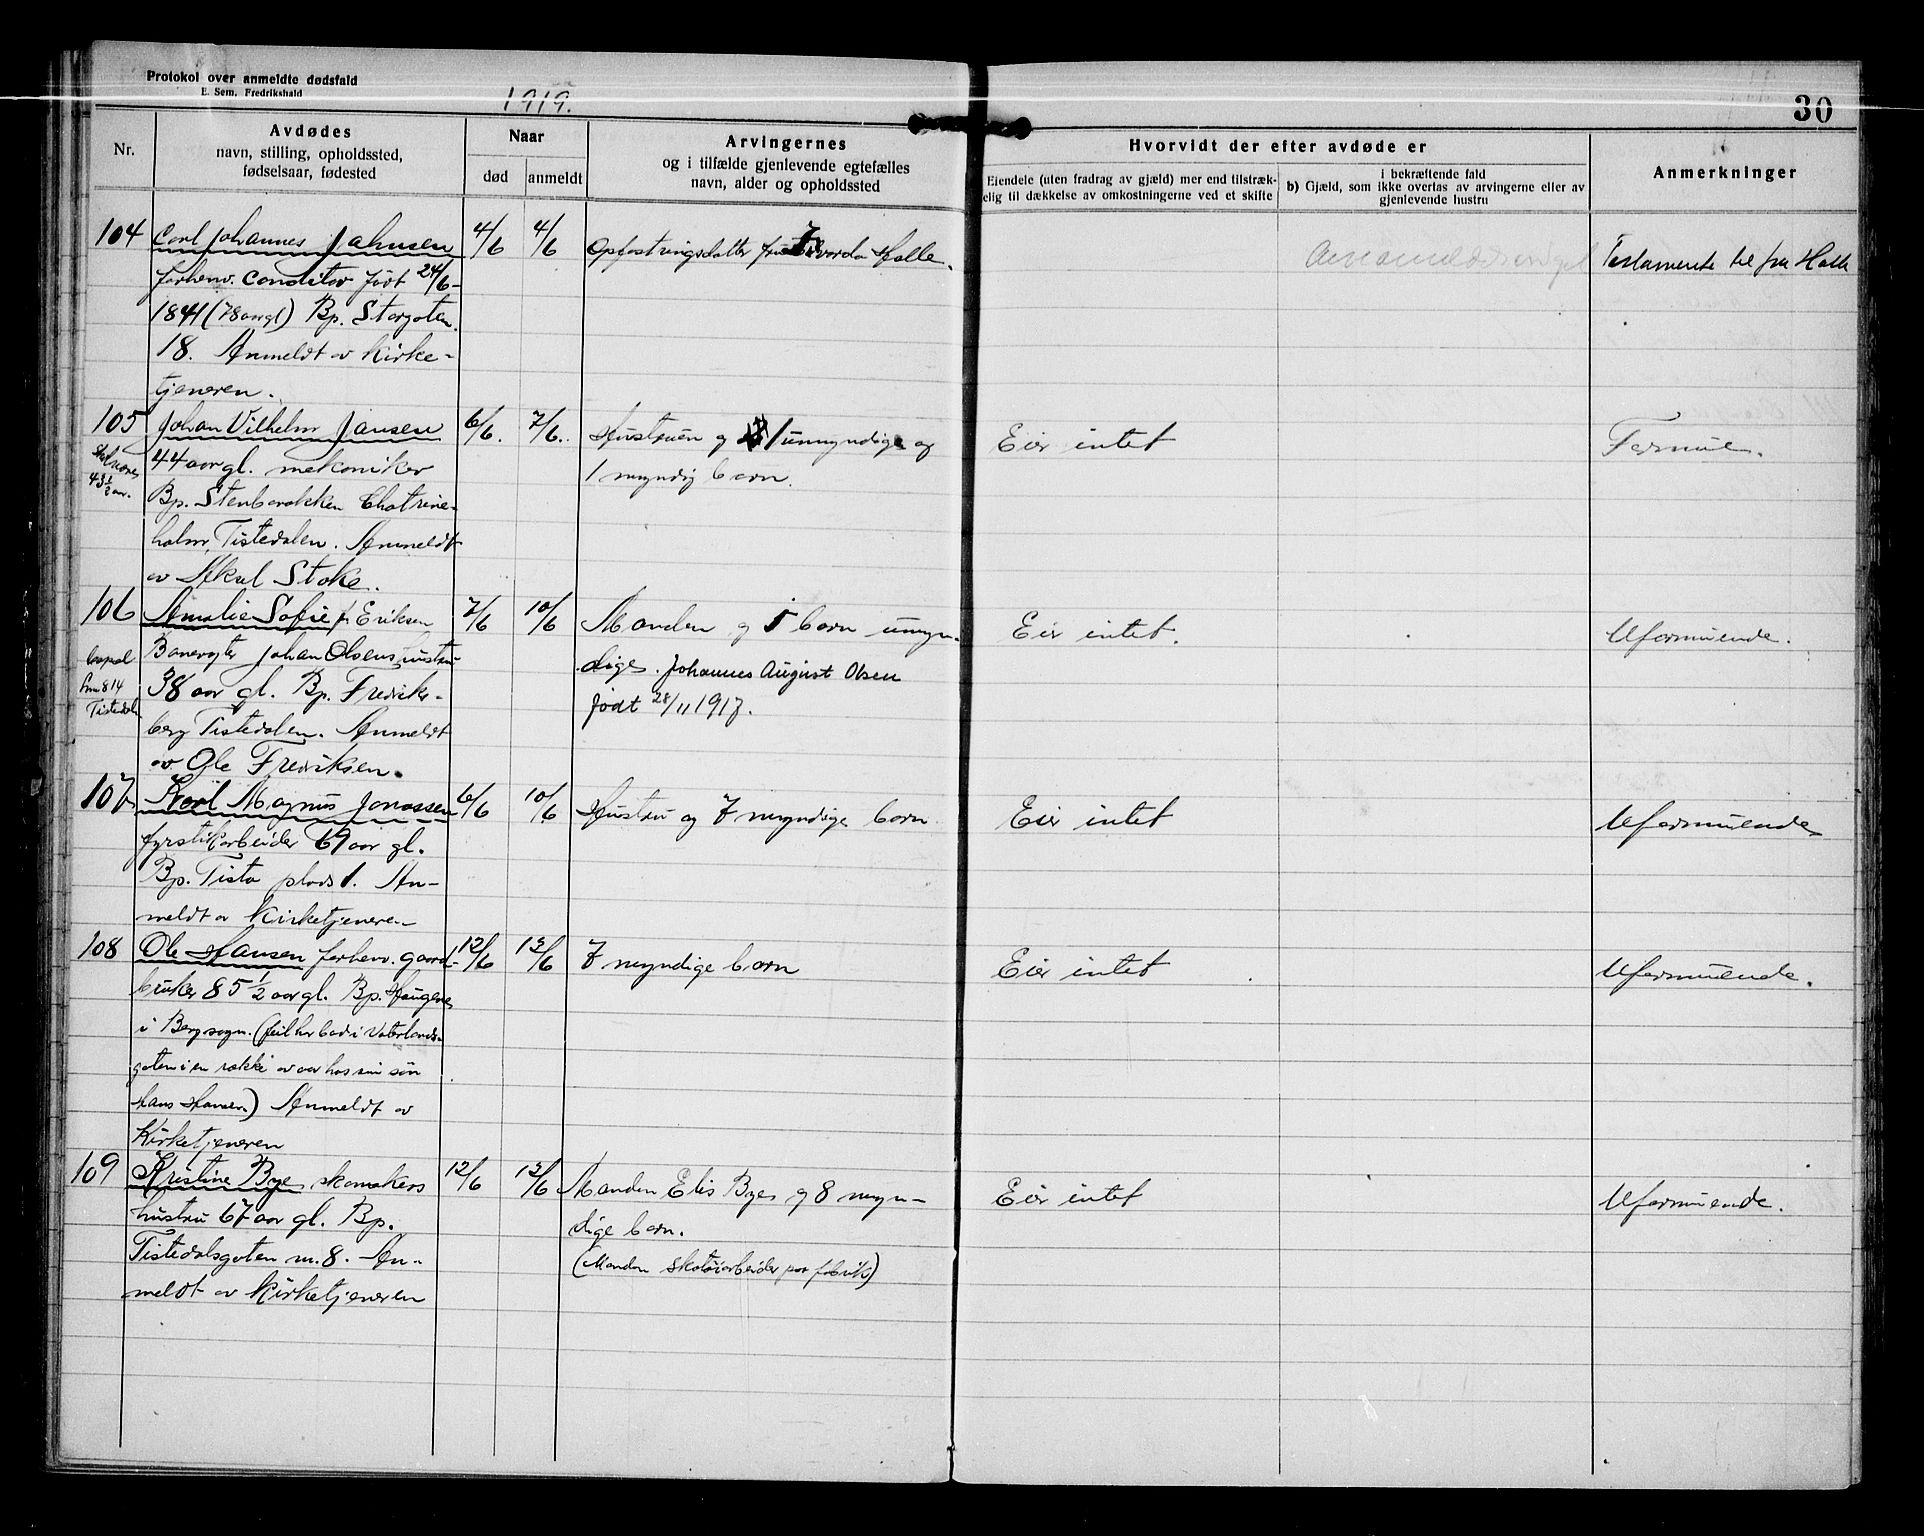 Protokol over anmeldte dødsfald
E. Sem, Fredrikshald
1919.
30
Nr.
Avdødes
navn, stilling, opholdssted,
fødselsaar, fødested
Naar
død
anmeldt
Arvingernes
og i tilfælde gjenlevende egtefælles
navn, alder og opholdssted
Hvorvidt der efter avdøde er
Eiendele (uten fradrag av gjæld) mer end tilstræk-
elig til dækkelse av omkostningerne ved et skifte
i bekræftende fald
b) Gjæld, som ikke overtas av arvingerne eller av
gjenlevende hustru
Anmerkninger
104 Carl Johannes Jahnsen 4/6 4/6 Opfostringsdatter fru Halle. Testamente til fru Halle
forhenv. Conditor født 24/6-
1841 (78 aar gl) Bp. Storgaten
18. Anmeldt av Kirke-
tjeneren.
105 Johan Vilhelm Jansen 6/6. 7/6. Hustruen og 1 umyndige og Eier intet Formue.
43½ aar.
44 aar gl. mekaniker 1 myndig barn.
Bp. Stenbarakken Chatrine-
holm, Tistedalen. Anmeldt
av Aksel Stoke.
106 Amalie Sofie f. Eriksen 7/6 10/6 Manden og 5 barn umyn- Eier intet. Uformuende.
Tistedal
Banevogter Johan Olsens hustru
dige. Johannes August Olsen
38 aar gl. Bp. Fredriks-
født 28/11 1917.
berg Tistedalen. Anmeldt
av Ole Fredriksen.
107 Karl Magnus Jonassen 6/6 10/6 Hustru og 7 myndige barn Eier intet Uformuende
fyrstikarbeider 67 aar gl.
Bp. Tista plads 1. An-
meldt av Kirketjeneren
108 Ole Hansen forhenv. gaard- 12/6 13/6 7 myndige barn Eier intet Uformuende.
bruker 85 ½ aar gl. Bp. Haugene
i Berg sogn. (feil her bad i Vaterlands-
gaten i en række av aar hos sin søn
Hans Hansen) Anmeldt av
Kirketjeneren
109 Kristine Bye, skomakers 12/6 13/6 Manden Elis Bye og 8 myn- Eier intet Uformuende.
hustru 67 aar gl. Bp.
dige barn.
Tistedalsgaten nr. 8. An-
(Manden skotøiarbeider paa fabrik)
meldt av Kirketjeneren